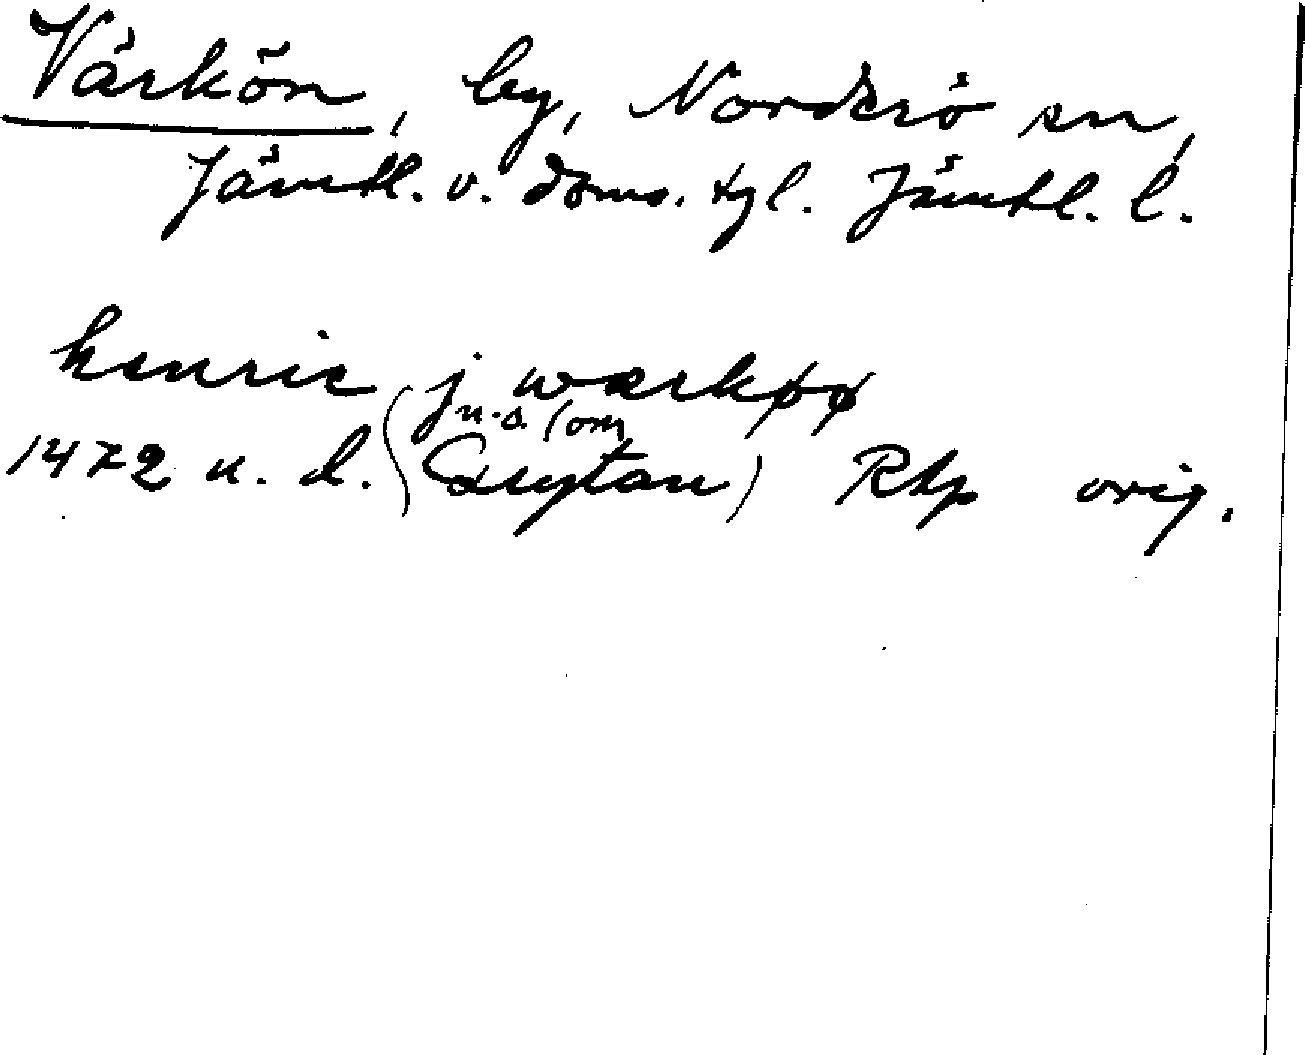 Värkön, by, Norderö sn,
Jämtl. v. doms. tgl. Jämtl. l.
henric j wærkøø
n.s. (om
1472 u. d. Qugtan) Rhp orig.